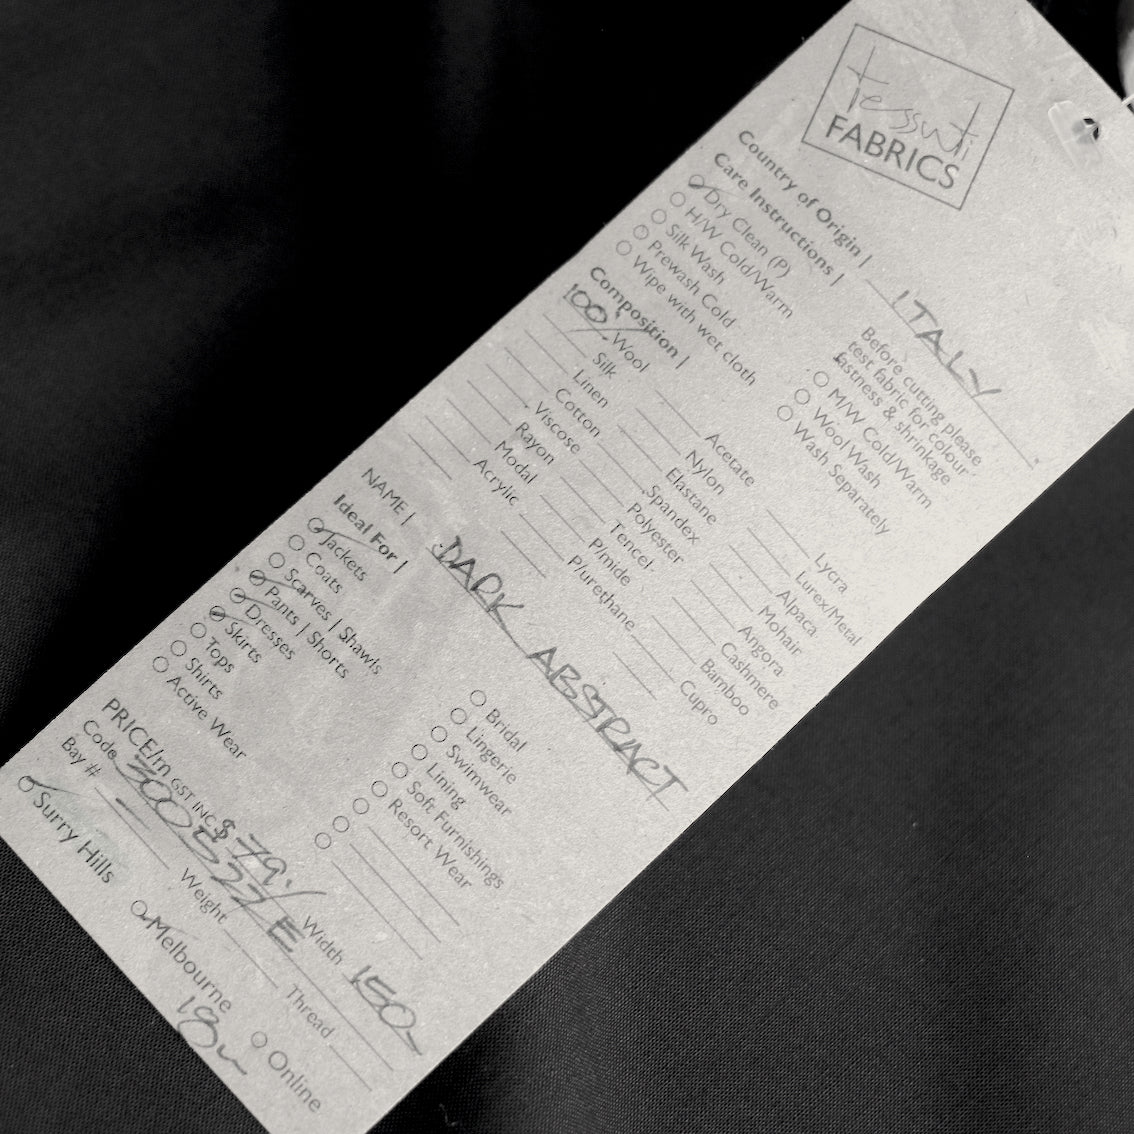 tessuti
FABRICS
Country of Origin | ITALY
Care Instructions |
Dry Clean (P)
H/W Cold/Warm
Silk Wash
Prewash Cold
Wipe with wet cloth
Before cutting please
test fabric for colour
fastness & shrinkage
M/W Cold/Warm
Wool Wash
Wash Separately
Composition |
100% Wool
Silk
Linen
Cotton
Viscose
Rayon
Modal
Acrylic
Acetate
Nylon
Elastane
Spandex
Polyester
Tencel
P/mide
P/urethane
Lycra
Lurex/Metal
Alpaca
Mohair
Angora
Cashmere
Bamboo
Cupro
NAME | DARK ABSTRACT
Ideal For |
Jackets
Coats
Scarves | Shawls
Pants | Shorts
Dresses
Skirts
Tops
Shirts
Active Wear
Bridal
Lingerie
Swimwear
Lining
Soft Furnishings
Resort Wear
PRICE/m GST INC $79 Width 150
Code
Weight Thread
Bay #
Surry Hills Melbourne Online